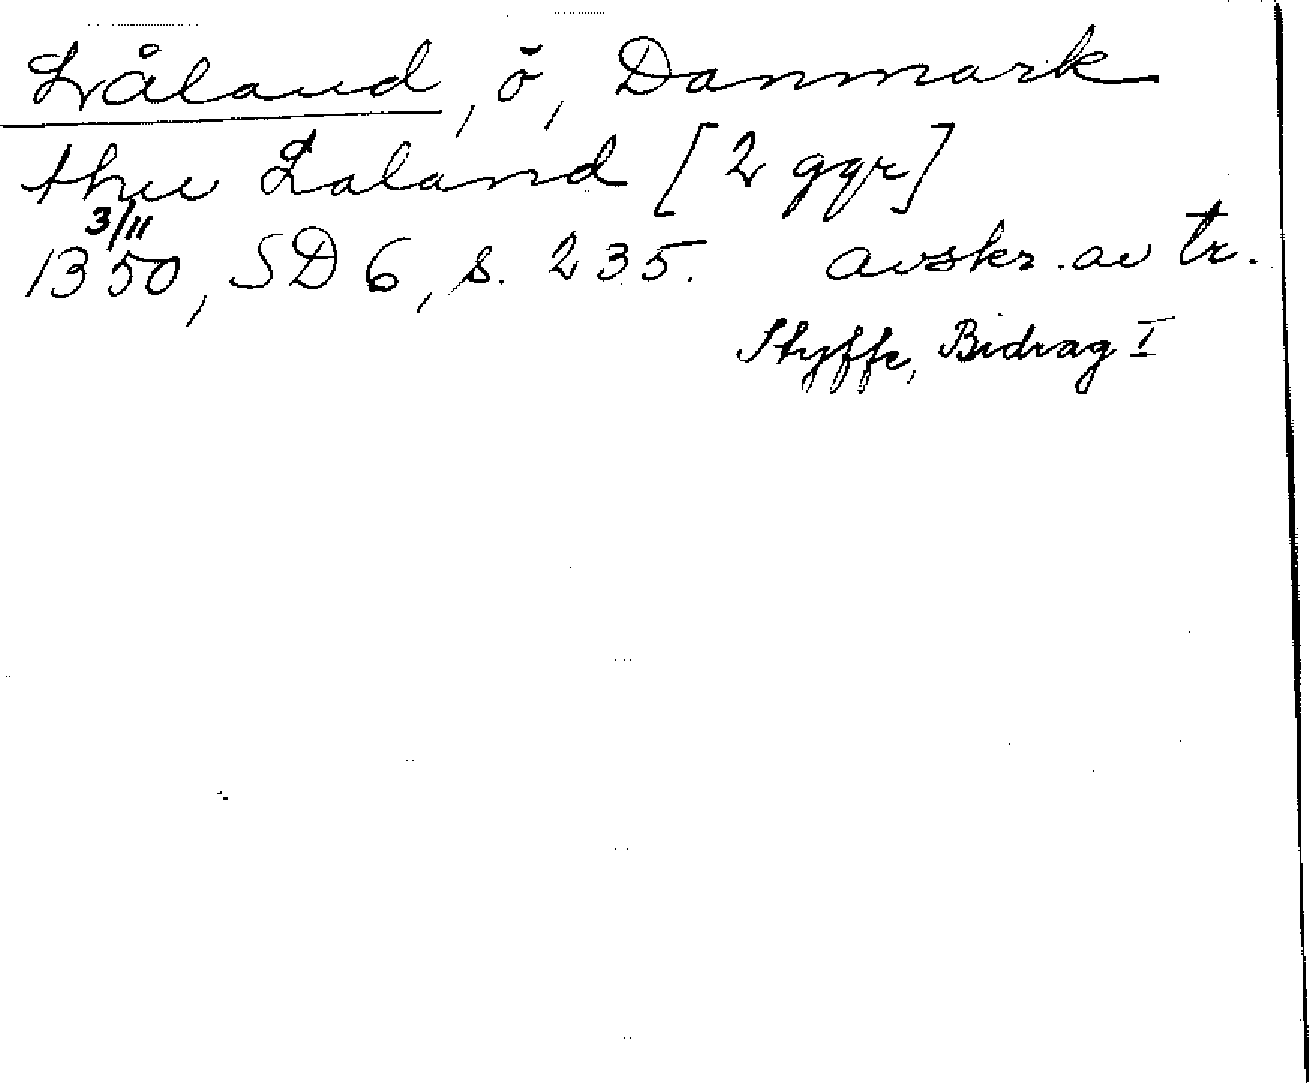 Låland, ö, Danmark
thu Laland [2 ggr]
3/11
1350, SD 6, s. 235. avskr. av tr.
Styffe, Bidrag I